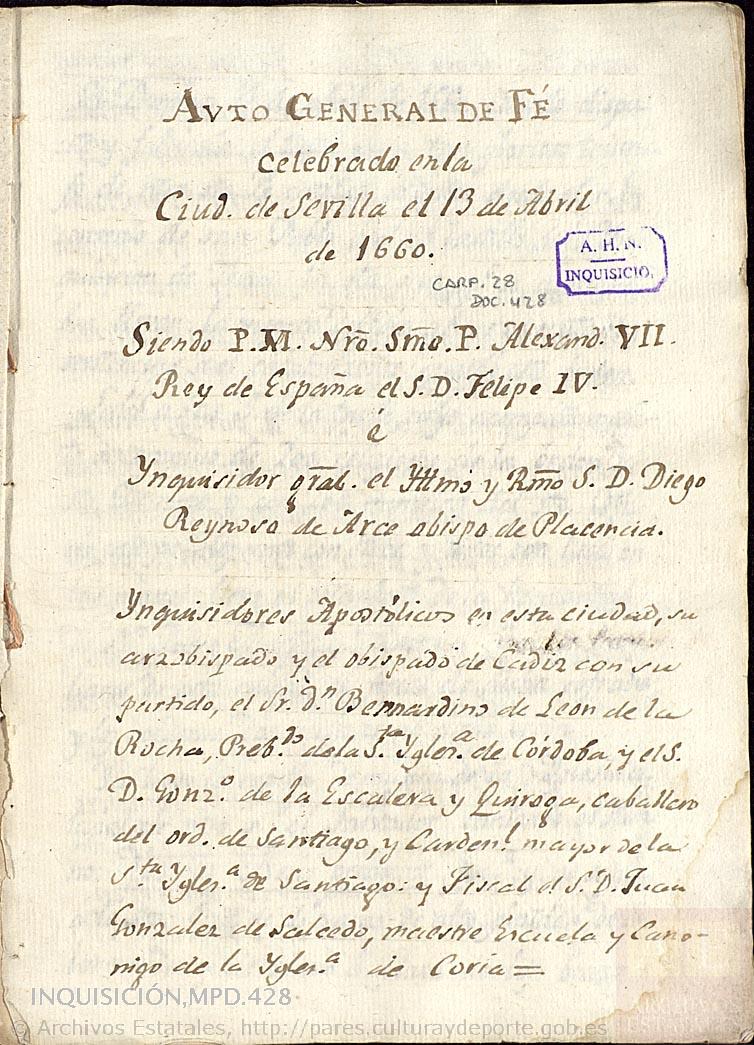 AVTO GENERAL DE FÉ
celebrado en la
Ciud. de Sevilla el 13 de Abril
de 1660.
A. H. N.
INQUISICIO.
CARP. 28
DOC. 428
Siendo P. M. Nrõ. Smõ. P. Alexand. VII.
Rey de España el S. D. Felipe IV.
é
Ynquisidor gral. el Yllmo y Rmõ S. D. Diego
Reynoso de Arce obispo de Placencia.
Ynquisidores Apostólicos en esta ciudad, su
arzobispado y el obispado de Cadiz con su
partido, el Sr. Dn. Bernardino de Leon de la
Rocha, Prebdo. de la Sta. Yglera. de Córdoba, y el S.
D. Gonzo. de la Escalera y Quiroga, caballero
del ord. de Santiago, y Cardenl. mayor de la
Sta Yglera. de Santiago: y Fiscal el S. D. Juan
Gonzalez de Salcedo, maestre Escuela y Cano-
nigo de la Yglera. de Coria =
INQUISICIÓN,MPD.428
© Archivos Estatales, http://pares.culturaydeporte.gob.es